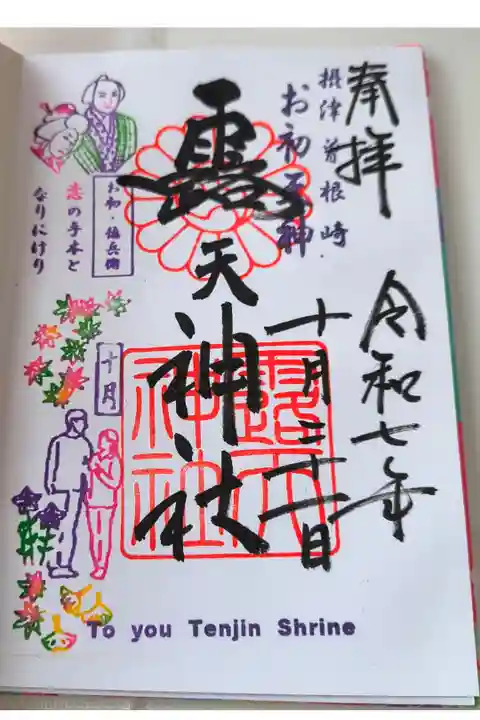 奉拝
令和七年
摂津曽根崎
お初天神
十月三十一日
露天神社
露天神社
お初・徳兵衛
恋の手本と
なりにけり
十月
To you Tenjin Shrine